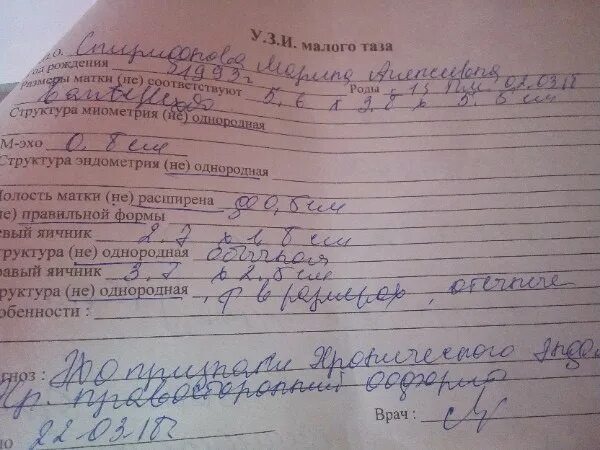 У.З.И. малого таза
О. Спиридонова Марина Алексеевна
од рождения 1993г Роды - 13 02.03.18
Размеры матки (не) соответствуют 5,6 х 3,8 х 5,6 см
Структура миометрия (не) однородная
М-эхо 0,8 см
Структура эндометрия (не) однородная
олость матки (не) расширена до 0,5 см
е) правильной формы
евый яичник 2,7 х 1,8 см
труктура (не) однородная обычная
равый яичник 3,7 х 2,5 см
руктура (не) однородная , в размерах, отечные
обенности :
гноз : Эхо признаки Хронического Эндом
Хр. правосторонний оофорит
Врач :
но 22-03-18г